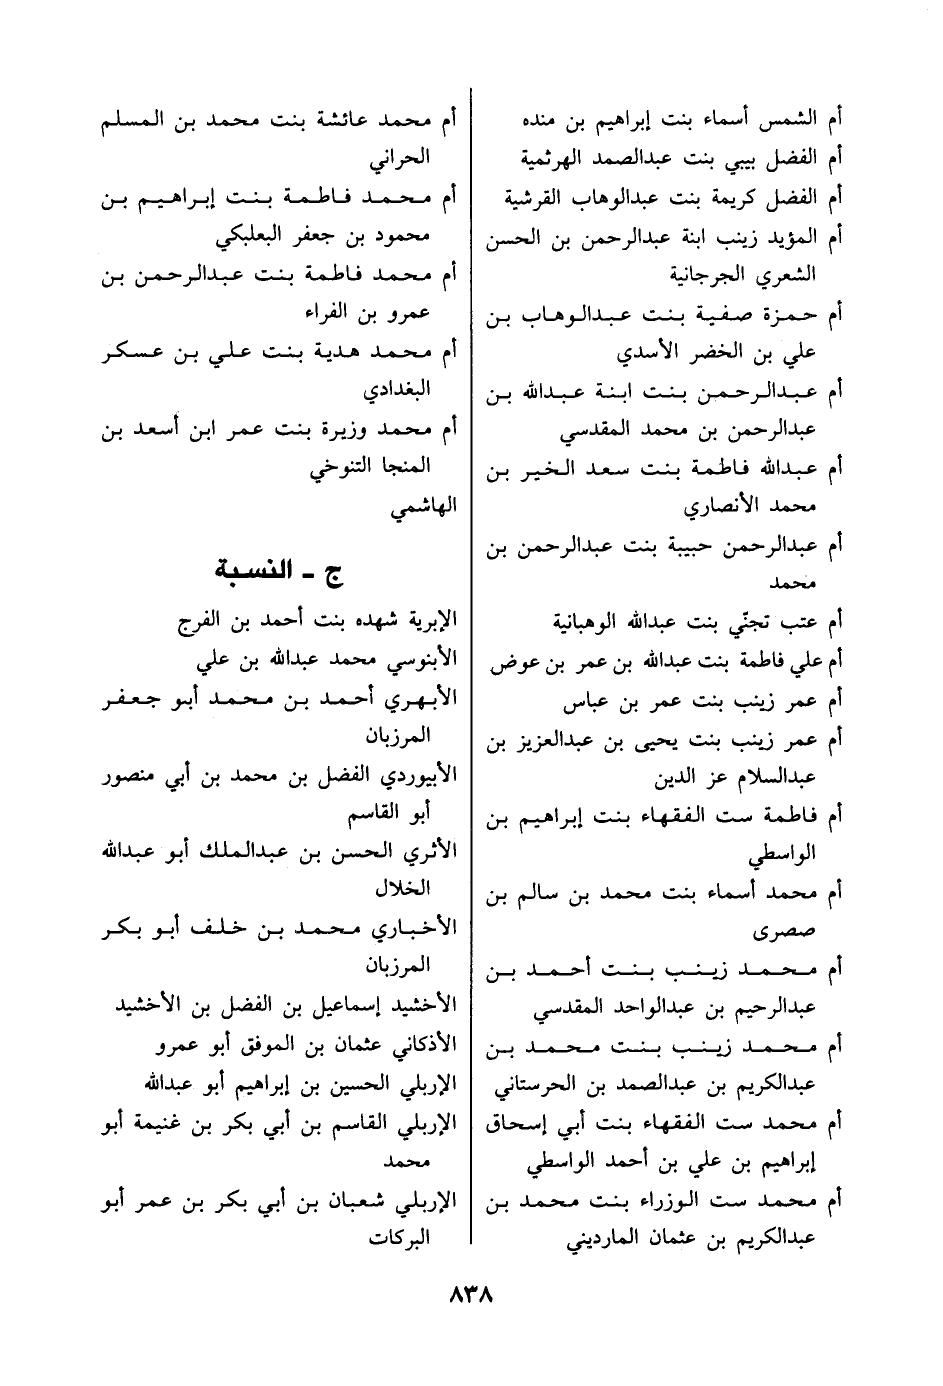 أم الشمس أسماء بنت إبراهيم بن منده
أم الفضل بيبي بنت عبدالصمد الهرثمية
أم الفضل كريمة بنت عبدالوهاب القرشية
أم المؤيد زينب ابنة عبدالرحمن بن الحسن
الشعري الجرجانية
أم حمزة صفية بنت عبدالوهاب بن
علي بن الخضر الأسدي
أم عبدالرحمن بنت ابنة عبدالله بن
عبدالرحمن بن محمد المقدسي
أم عبدالله فاطمة بنت سعد الخير بن
محمد الأنصاري
أم عبدالرحمن حبيبة بنت عبدالرحمن بن
محمد
أم عتب تجنّي بنت عبدالله الوهبانية
أم علي فاطمة بنت عبدالله بن عمر بن عوض
أم عمر زينب بنت عمر بن عباس
أم عمر زينب بنت يحيى بن عبدالعزيز بن
عبدالسلام عز الدين
أم فاطمة ست الفقهاء بنت إبراهيم بن
الواسطي
أم محمد أسماء بنت محمد بن سالم بن
صصرى
أم محمد زينب بنت أحمد بن
عبدالرحيم بن عبدالواحد المقدسي
أم محمد زينب بنت محمد بن
عبدالكريم بن عبدالصمد بن الحرستاني
أم محمد ست الفقهاء بنت أبي إسحاق
إبراهيم بن علي بن أحمد الواسطي
أم محمد ست الوزراء بنت محمد بن
عبدالكريم بن عثمان المارديني
أم محمد عائشة بنت محمد بن المسلم
الحراني
أم محمد فاطمة بنت إبراهيم بن
محمود بن جعفر البعلبكي
أم محمد فاطمة بنت عبدالرحمن بن
عمرو بن الفراء
أم محمد هدية بنت علي بن عسكر
البغدادي
أم محمد وزيرة بنت عمر ابن أسعد بن
المنجا التنوخي
الهاشمي
ج - النسبة
الإبرية شهده بنت أحمد بن الفرج
الأبنوسي محمد عبدالله بن علي
الأبهري أحمد بن محمد أبو جعفر
المرزبان
الأبيوردي الفضل بن محمد بن أبي منصور
أبو القاسم
الأثري الحسن بن عبدالملك أبو عبدالله
الخلال
الأخباري محمد بن خلف أبو بكر
المرزبان
الأخشيد إسماعيل بن الفضل بن الأخشيد
الأذكاني عثمان بن الموفق أبو عمرو
الإربلي الحسين بن إبراهيم أبو عبدالله
الإربلي القاسم بن أبي بكر بن غنيمة أبو
محمد
الإربلي شعبان بن أبي بكر بن عمر أبو
البركات
٨٣٨